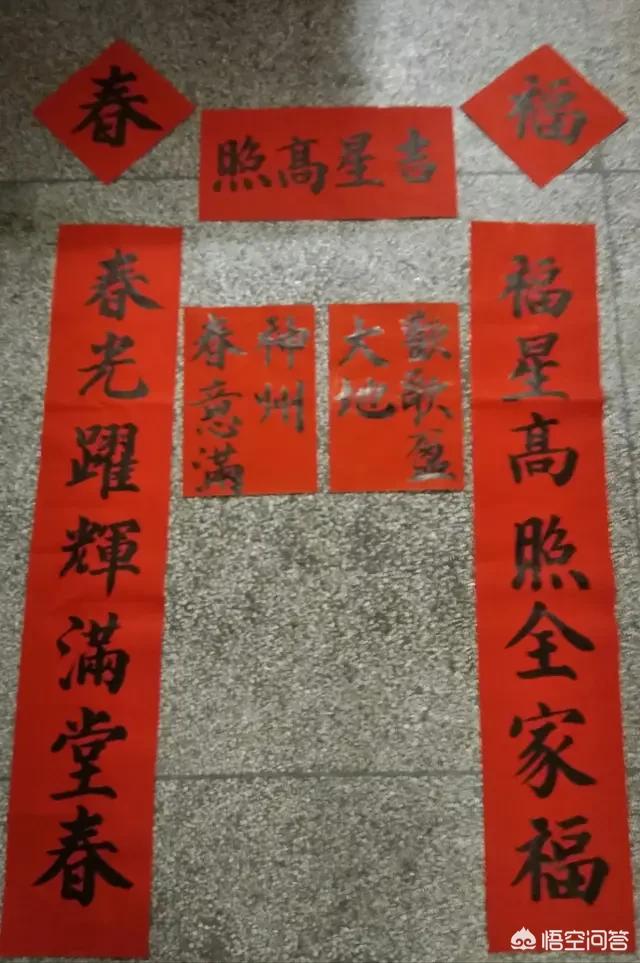 福
春
吉星高照
福星高照全家福
春光躍輝滿堂春
歡歌盈
大地
神州
春意滿
悟空问答